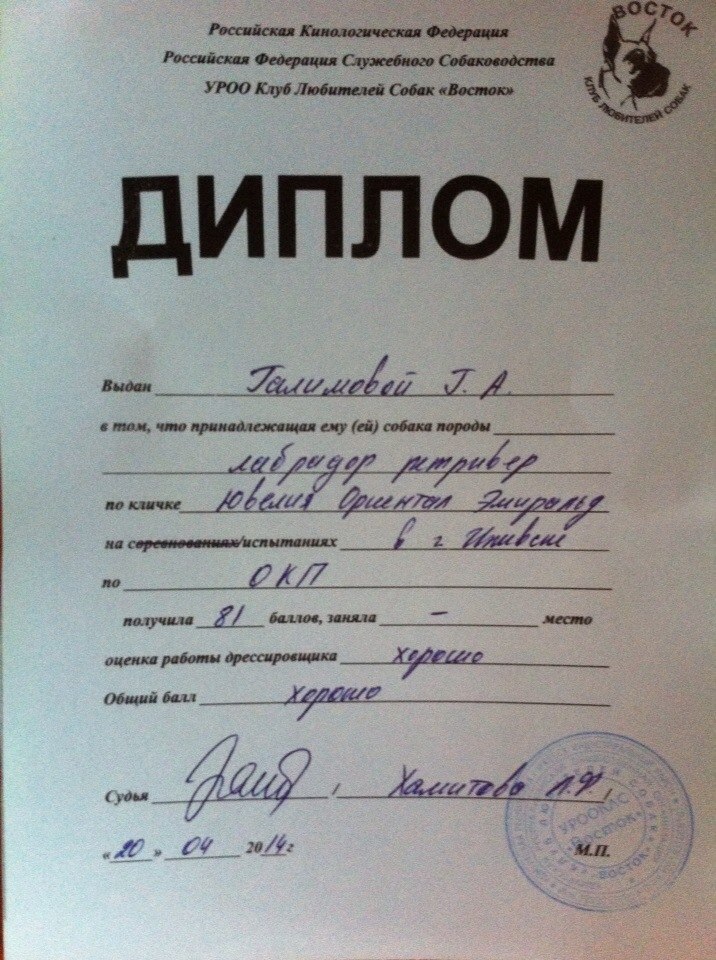 Российская Кинологическая Федерация
ВОСТОК
Российская Федерация Служебного Собаководства
УРОО Клуб Любителей Собак «Восток»
КЛУБ ЛЮБИТЕЛЕЙ СОБАК
ДИПЛОМ
Выдан Галимовой Г. А.
в том, что принадлежащая ему (ей) собака породы
лабрадор ретривер
по кличке Ювелия Ориентал Эмиральд
на соревнованиях/испытаниях в г Ижевске
по ОКП
получила 81 баллов, заняла – место
оценка работы дрессировщика хорошо
Общий балл хорошо
Судья / Хамитова Л.Ф /
« 20 » 04 2014г
М.П.
УРООКЛС
«ВОСТОК»